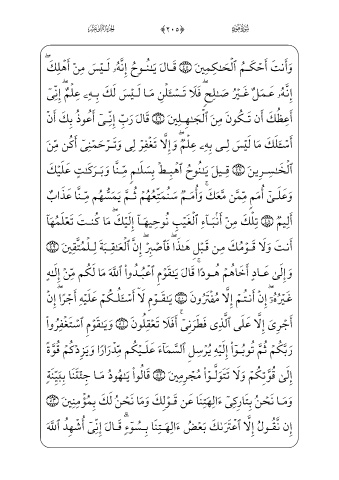 ﴿٢٠٥﴾
وَأَنتَ أَحْكَمُ ٱلْحَـٰكِمِينَ قَالَ يَـٰنُوحُ إِنَّهُۥ لَيْسَ مِنْ أَهْلِكَ ۖ
إِنَّهُۥ عَمَلٌ غَيْرُ صَـٰلِحٍ ۖ فَلَا تَسْـَٔلْنِ مَا لَيْسَ لَكَ بِهِۦ عِلْمٌ ۖ إِنِّىٓ
أَعِظُكَ أَن تَكُونَ مِنَ ٱلْجَـٰهِلِينَ قَالَ رَبِّ إِنِّىٓ أَعُوذُ بِكَ أَنْ
أَسْـَٔلَكَ مَا لَيْسَ لِى بِهِۦ عِلْمٌ ۖ وَإِلَّا تَغْفِرْ لِى وَتَرْحَمْنِىٓ أَكُن مِّنَ
ٱلْخَـٰسِرِينَ قِيلَ يَـٰنُوحُ ٱهْبِطْ بِسَلَـٰمٍ مِّنَّا وَبَرَكَـٰتٍ عَلَيْكَ
وَعَلَىٰٓ أُمَمٍ مِّمَّن مَّعَكَ ۚ وَأُمَمٌ سَنُمَتِّعُهُمْ ثُمَّ يَمَسُّهُم مِّنَّا عَذَابٌ
أَلِيمٌ تِلْكَ مِنْ أَنۢبَآءِ ٱلْغَيْبِ نُوحِيهَآ إِلَيْكَ ۖ مَا كُنتَ تَعْلَمُهَآ
أَنتَ وَلَا قَوْمُكَ مِن قَبْلِ هَـٰذَا ۖ فَٱصْبِرْ ۖ إِنَّ ٱلْعَـٰقِبَةَ لِلْمُتَّقِينَ
وَإِلَىٰ عَادٍ أَخَاهُمْ هُودًا ۚ قَالَ يَـٰقَوْمِ ٱعْبُدُوا۟ ٱللَّهَ مَا لَكُم مِّنْ إِلَـٰهٍ
غَيْرُهُۥٓ ۖ إِنْ أَنتُمْ إِلَّا مُفْتَرُونَ يَـٰقَوْمِ لَآ أَسْـَٔلُكُمْ عَلَيْهِ أَجْرًا ۖ إِنْ
أَجْرِىَ إِلَّا عَلَى ٱلَّذِى فَطَرَنِىٓ ۚ أَفَلَا تَعْقِلُونَ وَيَـٰقَوْمِ ٱسْتَغْفِرُوا۟
رَبَّكُمْ ثُمَّ تُوبُوٓا۟ إِلَيْهِ يُرْسِلِ ٱلسَّمَآءَ عَلَيْكُم مِّدْرَارًا وَيَزِدْكُمْ قُوَّةً
إِلَىٰ قُوَّتِكُمْ وَلَا تَتَوَلَّوْا۟ مُجْرِمِينَ قَالُوا۟ يَـٰهُودُ مَا جِئْتَنَا بِبَيِّنَةٍ
وَمَا نَحْنُ بِتَارِكِىٓ ءَالِهَتِنَا عَن قَوْلِكَ وَمَا نَحْنُ لَكَ بِمُؤْمِنِينَ
إِن نَّقُولُ إِلَّا ٱعْتَرَىٰكَ بَعْضُ ءَالِهَتِنَا بِسُوٓءٍ ۗ قَالَ إِنِّىٓ أُشْهِدُ ٱللَّهَ